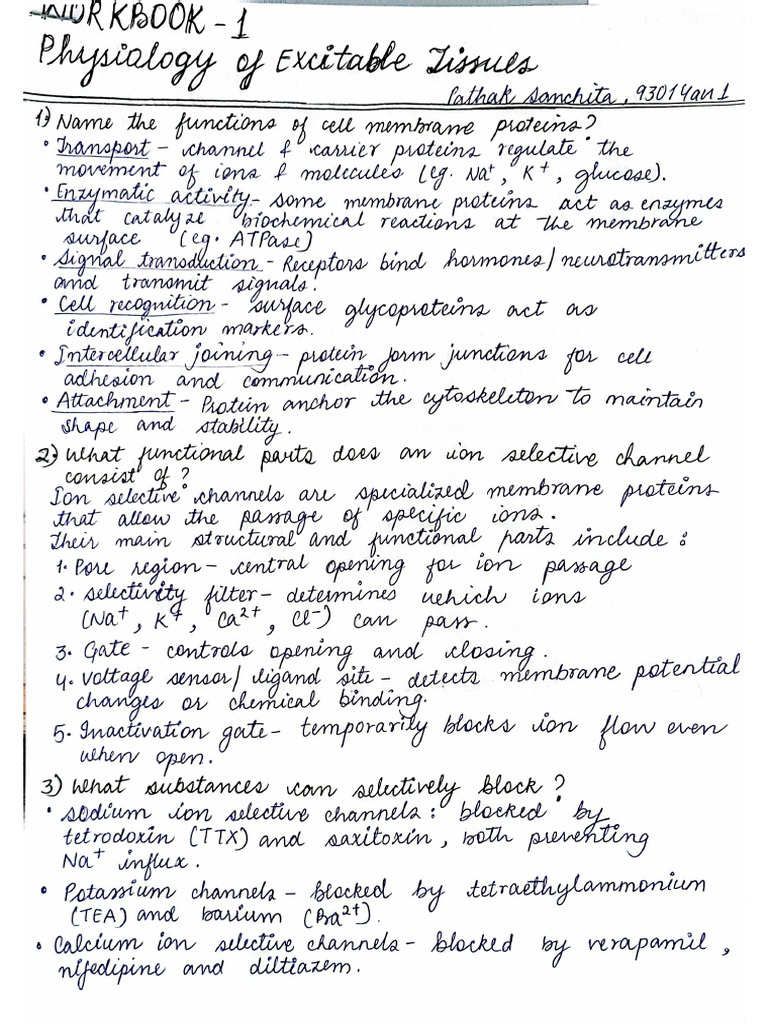 WORKBOOK - 1
Physiology of Excitable Tissues
Pathak Sanchita, 93014an1
1) Name the functions of cell membrane proteins?
• Transport – channel & carrier proteins regulate the
movement of ions & molecules (eg. Na⁺, K⁺, glucose).
• Enzymatic activity – some membrane proteins act as enzymes
that catalyze biochemical reactions at the membrane
surface (eg. ATPase)
• Signal transduction – Receptors bind hormones/neurotransmitters
and transmit signals.
• Cell recognition – surface glycoproteins act as
identification markers.
• Intercellular joining – protein form junctions for cell
adhesion and communication.
• Attachment – Protein anchor the cytoskeleton to maintain
shape and stability.
2) What functional parts does an ion selective channel
consist of?
Ion selective channels are specialized membrane proteins
that allow the passage of specific ions.
Their main structural and functional parts include :
1. Pore region – central opening for ion passage
2. selectivity filter – determines which ions
(Na⁺, K⁺, Ca²⁺, Cl⁻) can pass.
3. Gate – controls opening and closing.
4. Voltage sensor/ligand site – detects membrane potential
changes or chemical binding.
5. Inactivation gate – temporarily blocks ion flow even
when open.
3) What substances can selectively block ?
• Sodium ion selective channels : blocked by
tetrodoxin (TTX) and saxitoxin, both preventing
Na⁺ influx.
• Potassium channels – blocked by tetraethylammonium
(TEA) and barium (Ba²⁺).
• Calcium ion selective channels – blocked by verapamil,
nifedipine and diltiazem.